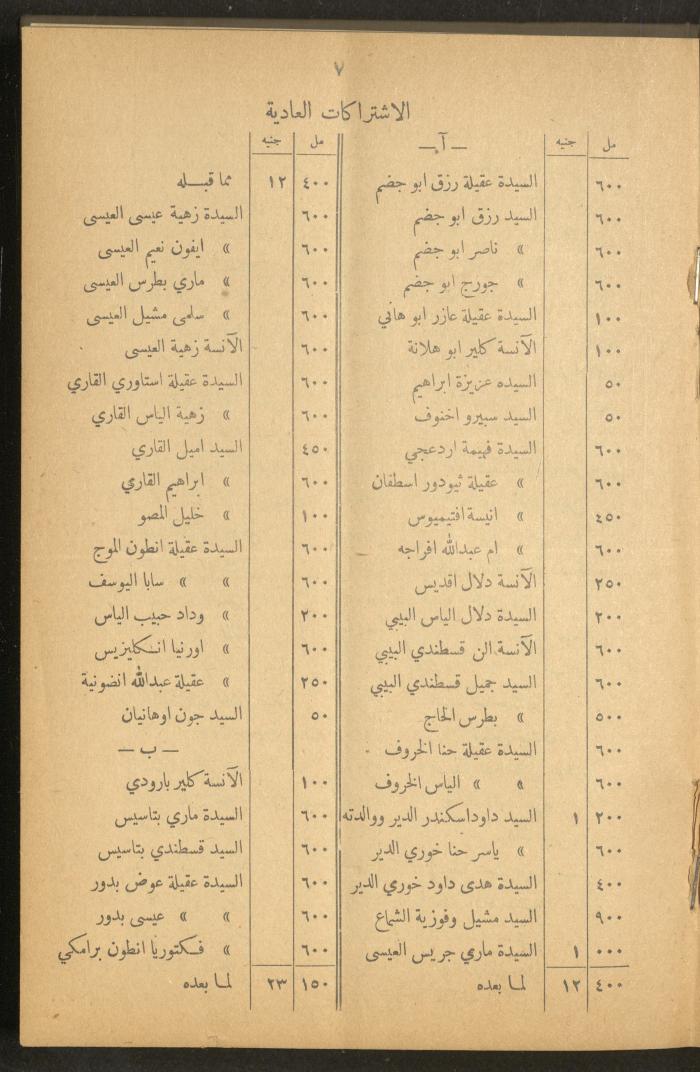 ٧
الاشتراكات العادية
مل جنيه — آ —
٦٠٠ السيدة عقيلة رزق ابو جضم
٦٠٠ السيد رزق ابو جضم
٦٠٠ » ناصر ابو جضم
٦٠٠ » جورج ابو جضم
١٠٠ السيدة عقيلة عازر ابو هاني
١٠٠ الآنسة كلير ابو هلانة
٥٠ السيده عزيزة ابراهيم
٥٠ السيد سبيرو اخنوف
٦٠٠ السيدة فهيمة اردعجي
٦٠٠ » عقيلة ثيودور اسطفان
٤٥٠ » انيسة افتيميوس
٦٠٠ » ام عبدالله افراجه
٢٥٠ الآنسة دلال اقديس
٢٠٠ السيدة دلال الياس البيبي
٦٠٠ الآنسة الن قسطندي البيبي
٦٠٠ السيد جميل قسطندي البيبي
٥٠٠ » بطرس الحاج
٦٠٠ السيدة عقيلة حنا الخروف
٦٠٠ » » الياس الخروف
٢٠٠ ١ السيد داود اسكندر الدير ووالدته
٦٠٠ » ياسر حنا خوري الدير
٤٠٠ السيدة هدى داود خوري الدير
٩٠٠ السيد مشيل وفوزية الشماع
٠٠٠ ١ السيدة ماري جريس العيسى
٤٠٠ ١٢ لما بعده
مل جنيه
٤٠٠ ١٢ مما قبله
٦٠٠ السيدة زهية عيسى العيسى
٦٠٠ » ايفون نعيم العيسى
٦٠٠ » ماري بطرس العيسى
٦٠٠ » سلمى مشيل العيسى
٦٠٠ الآنسة زهية العيسى
٦٠٠ السيدة عقيلة استاوري القاري
٦٠٠ » زهية الياس القاري
٤٥٠ السيد اميل القاري
٦٠٠ » ابراهيم القاري
١٠٠ » خليل المصو
٦٠٠ السيدة عقيلة انطون الموج
٦٠٠ » » سابا اليوسف
٢٠٠ » وداد حبيب الياس
٦٠٠ » اورنيا انكليزيس
٢٥٠ » عقيلة عبدالله انضونية
٥٠ السيد جون اوهانيان
— ب —
١٠٠ الآنسة كلير بارودي
٦٠٠ السيدة ماري بتاسيس
٦٠٠ السيد قسطندي بتاسيس
٦٠٠ السيدة عقيلة عوض بدور
٦٠٠ » » عيسى بدور
٦٠٠ » فكتوريا انطون برامكي
١٥٠ ٢٣ لما بعده